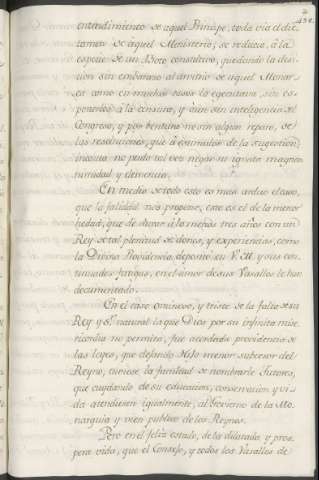 entendimiento de aquel Principe, toda via el dic-
tamen de aquel Ministerio, se reducia, â la
especie de un Voto consultivo, quedando la deci-
sion sin embarazo al arvitrio de aquel Monar-
ca como en muchos casos lo egecutava, sin es-
ponerlos â la censura, y aun sin inteligencia del
Congreso, y por bentura no sin algun reparo, de
las resoluciones, que â estimulos de la sugestion,
no pudo tal vez negar su ignata magnani-
timidad y clemencia.
En medio de todo esto es mas arduo el caso,
que la fatalidad nos propone, este es el de la menor
hedad, que de durar â lo menos tres años con un
Rey de tal plenitud de dones, y experiencias, como
la Divina Providencia, deposito en V.M. y sus con-
tinuadas fatigas, en el amor de sus Vasallos le han
documentado.
En el caso ominoso, y triste de la falta de su
Rey y Sr. natural la que Dios por su infinita mise-
ricordia no permita, fue acordada providencia de
las leyes, que defando hijo menor subcesor del
Reyno, tuviese la facultad de nombrarle Tutores,
que cuydando de su educacion, conservacion y vi-
da atendiesen igualmente, al Govierno de la Mo-
narquia y vien publico de los Reynos.
Pero en el feliz estado, de la dilatada, y pros-
pera vida, que el Consejo, y todos los Vasallos de